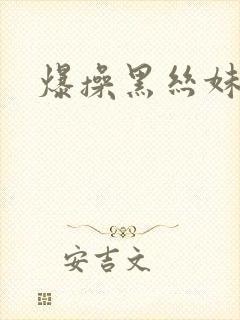 爆操黑丝妹
安吉文